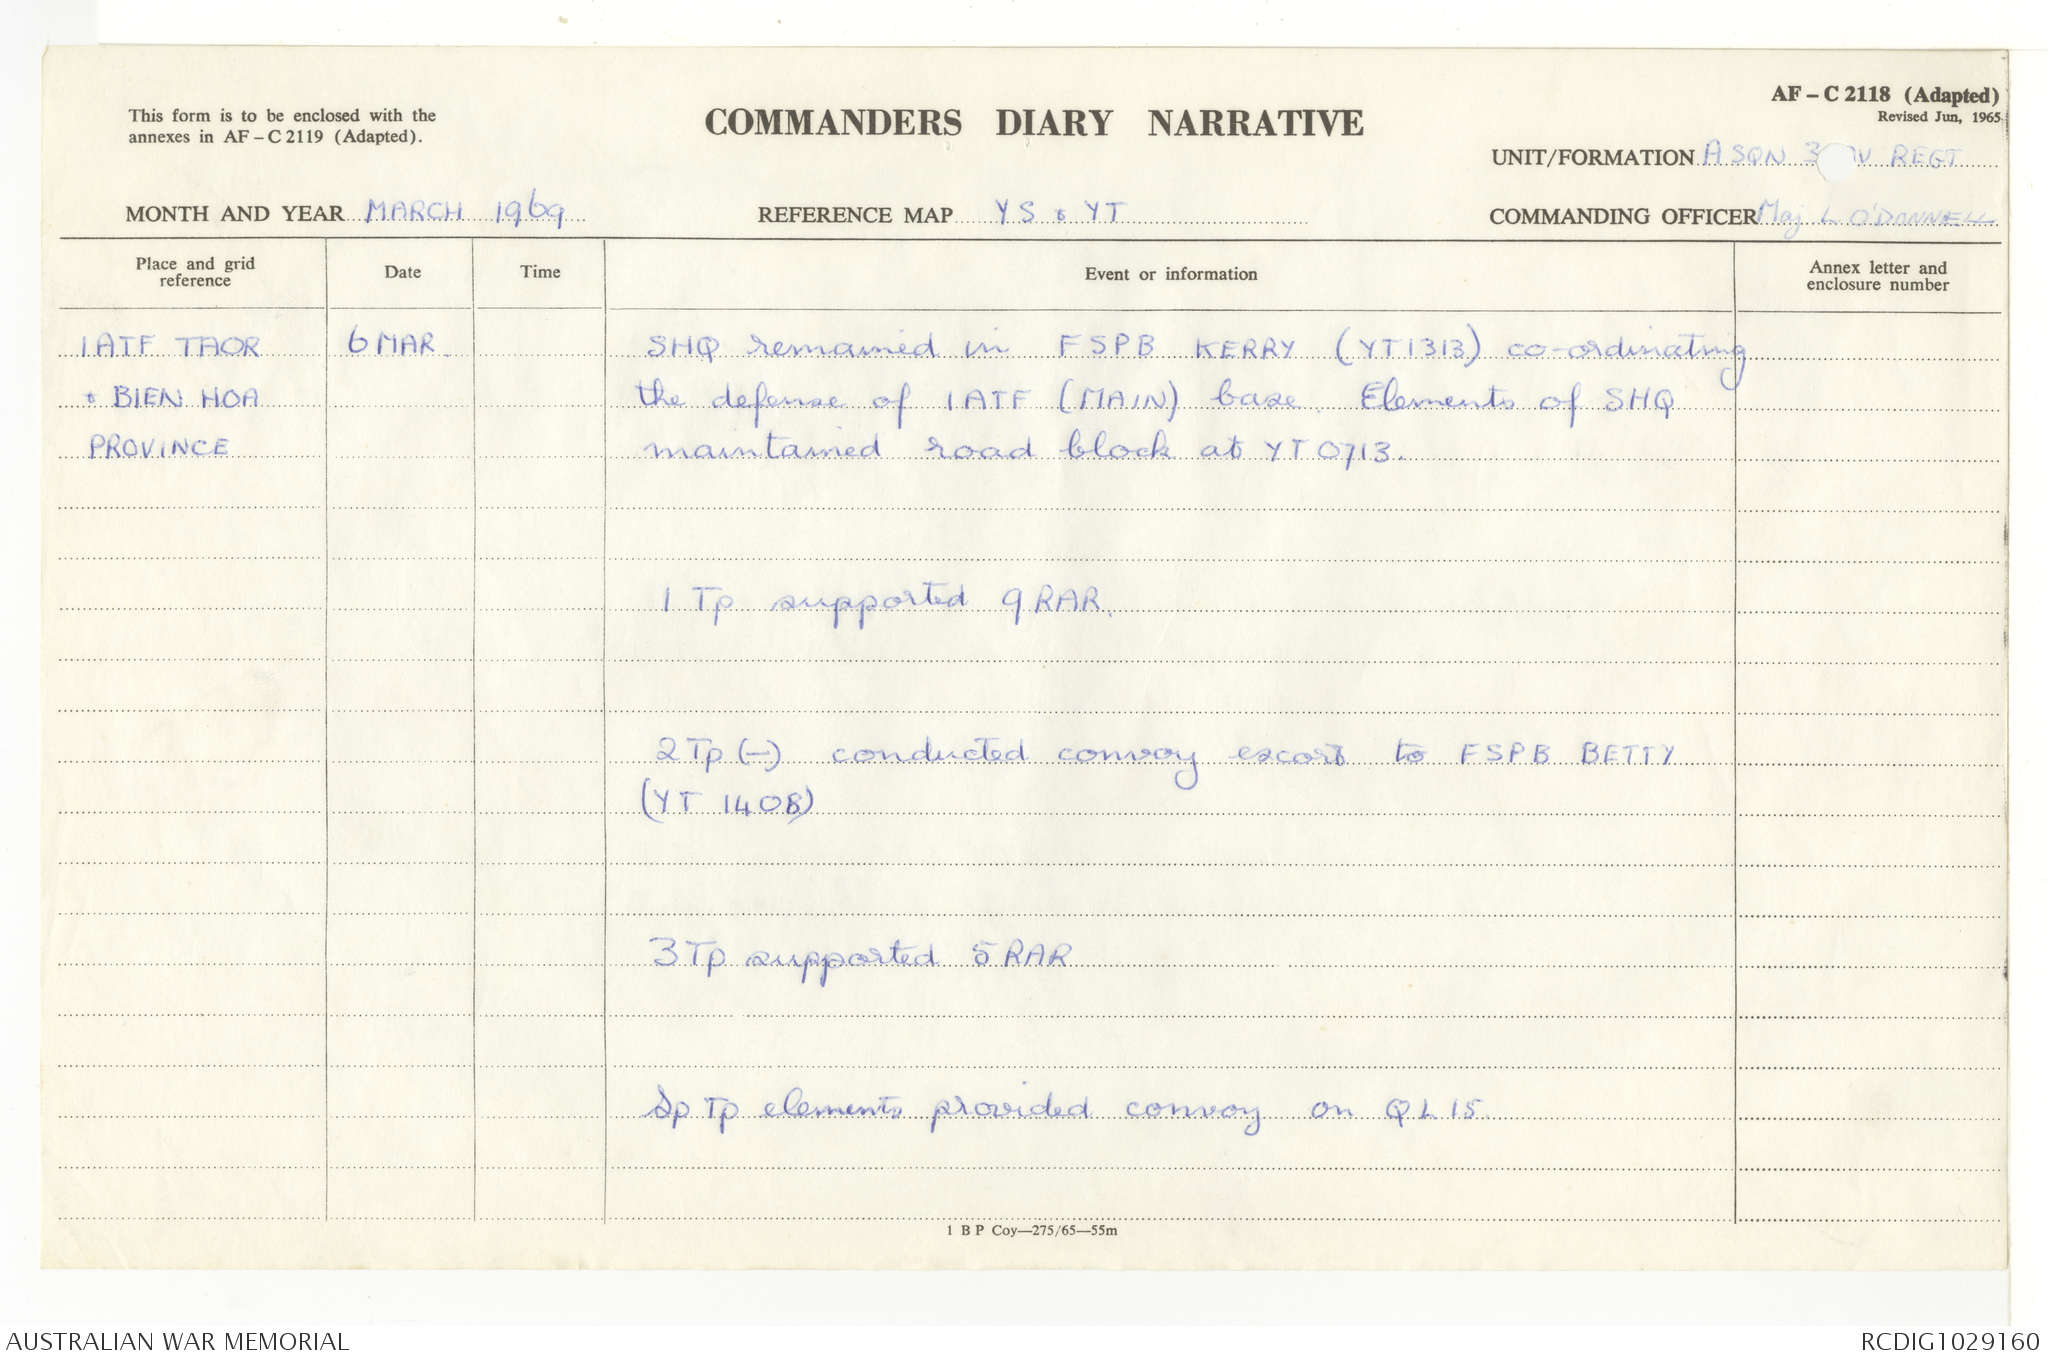 This form is to be enclosed with the
annexes in AF – C 2119 (Adapted).
COMMANDERS DIARY NARRATIVE
AF – C 2118 (Adapted)
Revised Jun, 1965
UNIT/FORMATION A SQN 3 REGT
MONTH AND YEAR MARCH 1969
REFERENCE MAP YS & YT
COMMANDING OFFICER Maj L O'DONNELL
Place and grid
reference
Date
Time
Event or information
Annex letter and
enclosure number
1 ATF TAOR
& BIEN HOA
PROVINCE
6 MAR
SHQ remained in FSPB KERRY (YT1313) co-ordinating
the defense of 1 ATF (MAIN) base. Elements of SHQ
maintained road block at YT 0713.
1 Tp supported 9 RAR.
2 Tp (-) conducted convoy escort to FSPB BETTY
(YT 1408)
3 Tp supported 5 RAR
Sp Tp elements provided convoy on QL 15.
1 B P Coy—275/65—55m
AUSTRALIAN WAR MEMORIAL
RCDIG1029160